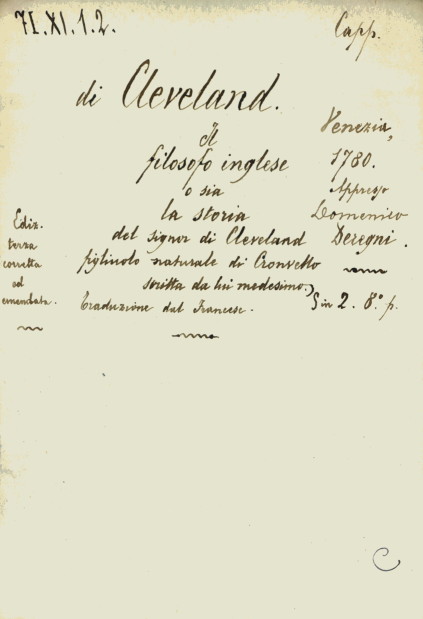 71.XI.1.2.
Capp.
di Cleveland.
Il
filosofo inglese
o sia
la storia
del signor di Cleveland
figliuolo naturale di Cronvello
scritta da lui medesimo.
Traduzione dal Francese.
Ediz.
terza
corretta
ed
emendata.
Venezia,
1780.
Appresso
Domenico
Deregni.
in 2. 8.° p.
C